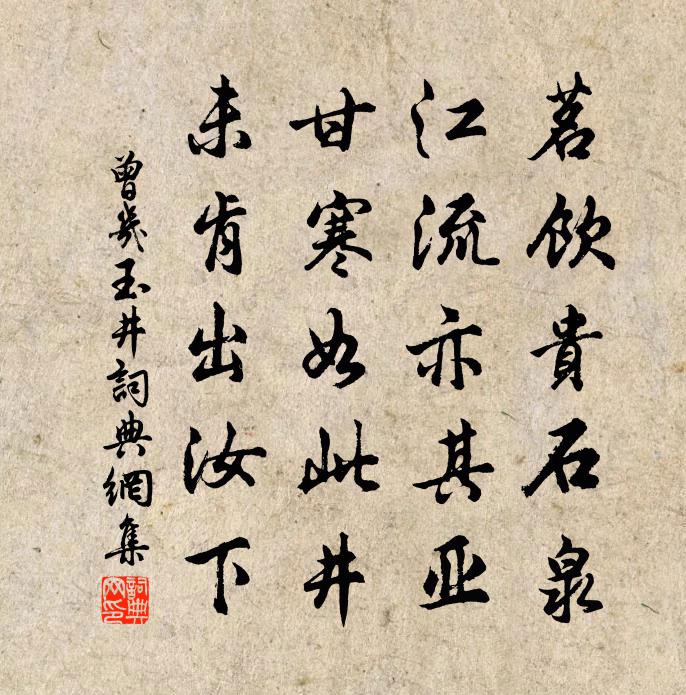 茗飲貴石泉
江流亦其亚
甘寒如此井
未肯出汝下
曾幾玉井詞典網集
詞典
网印